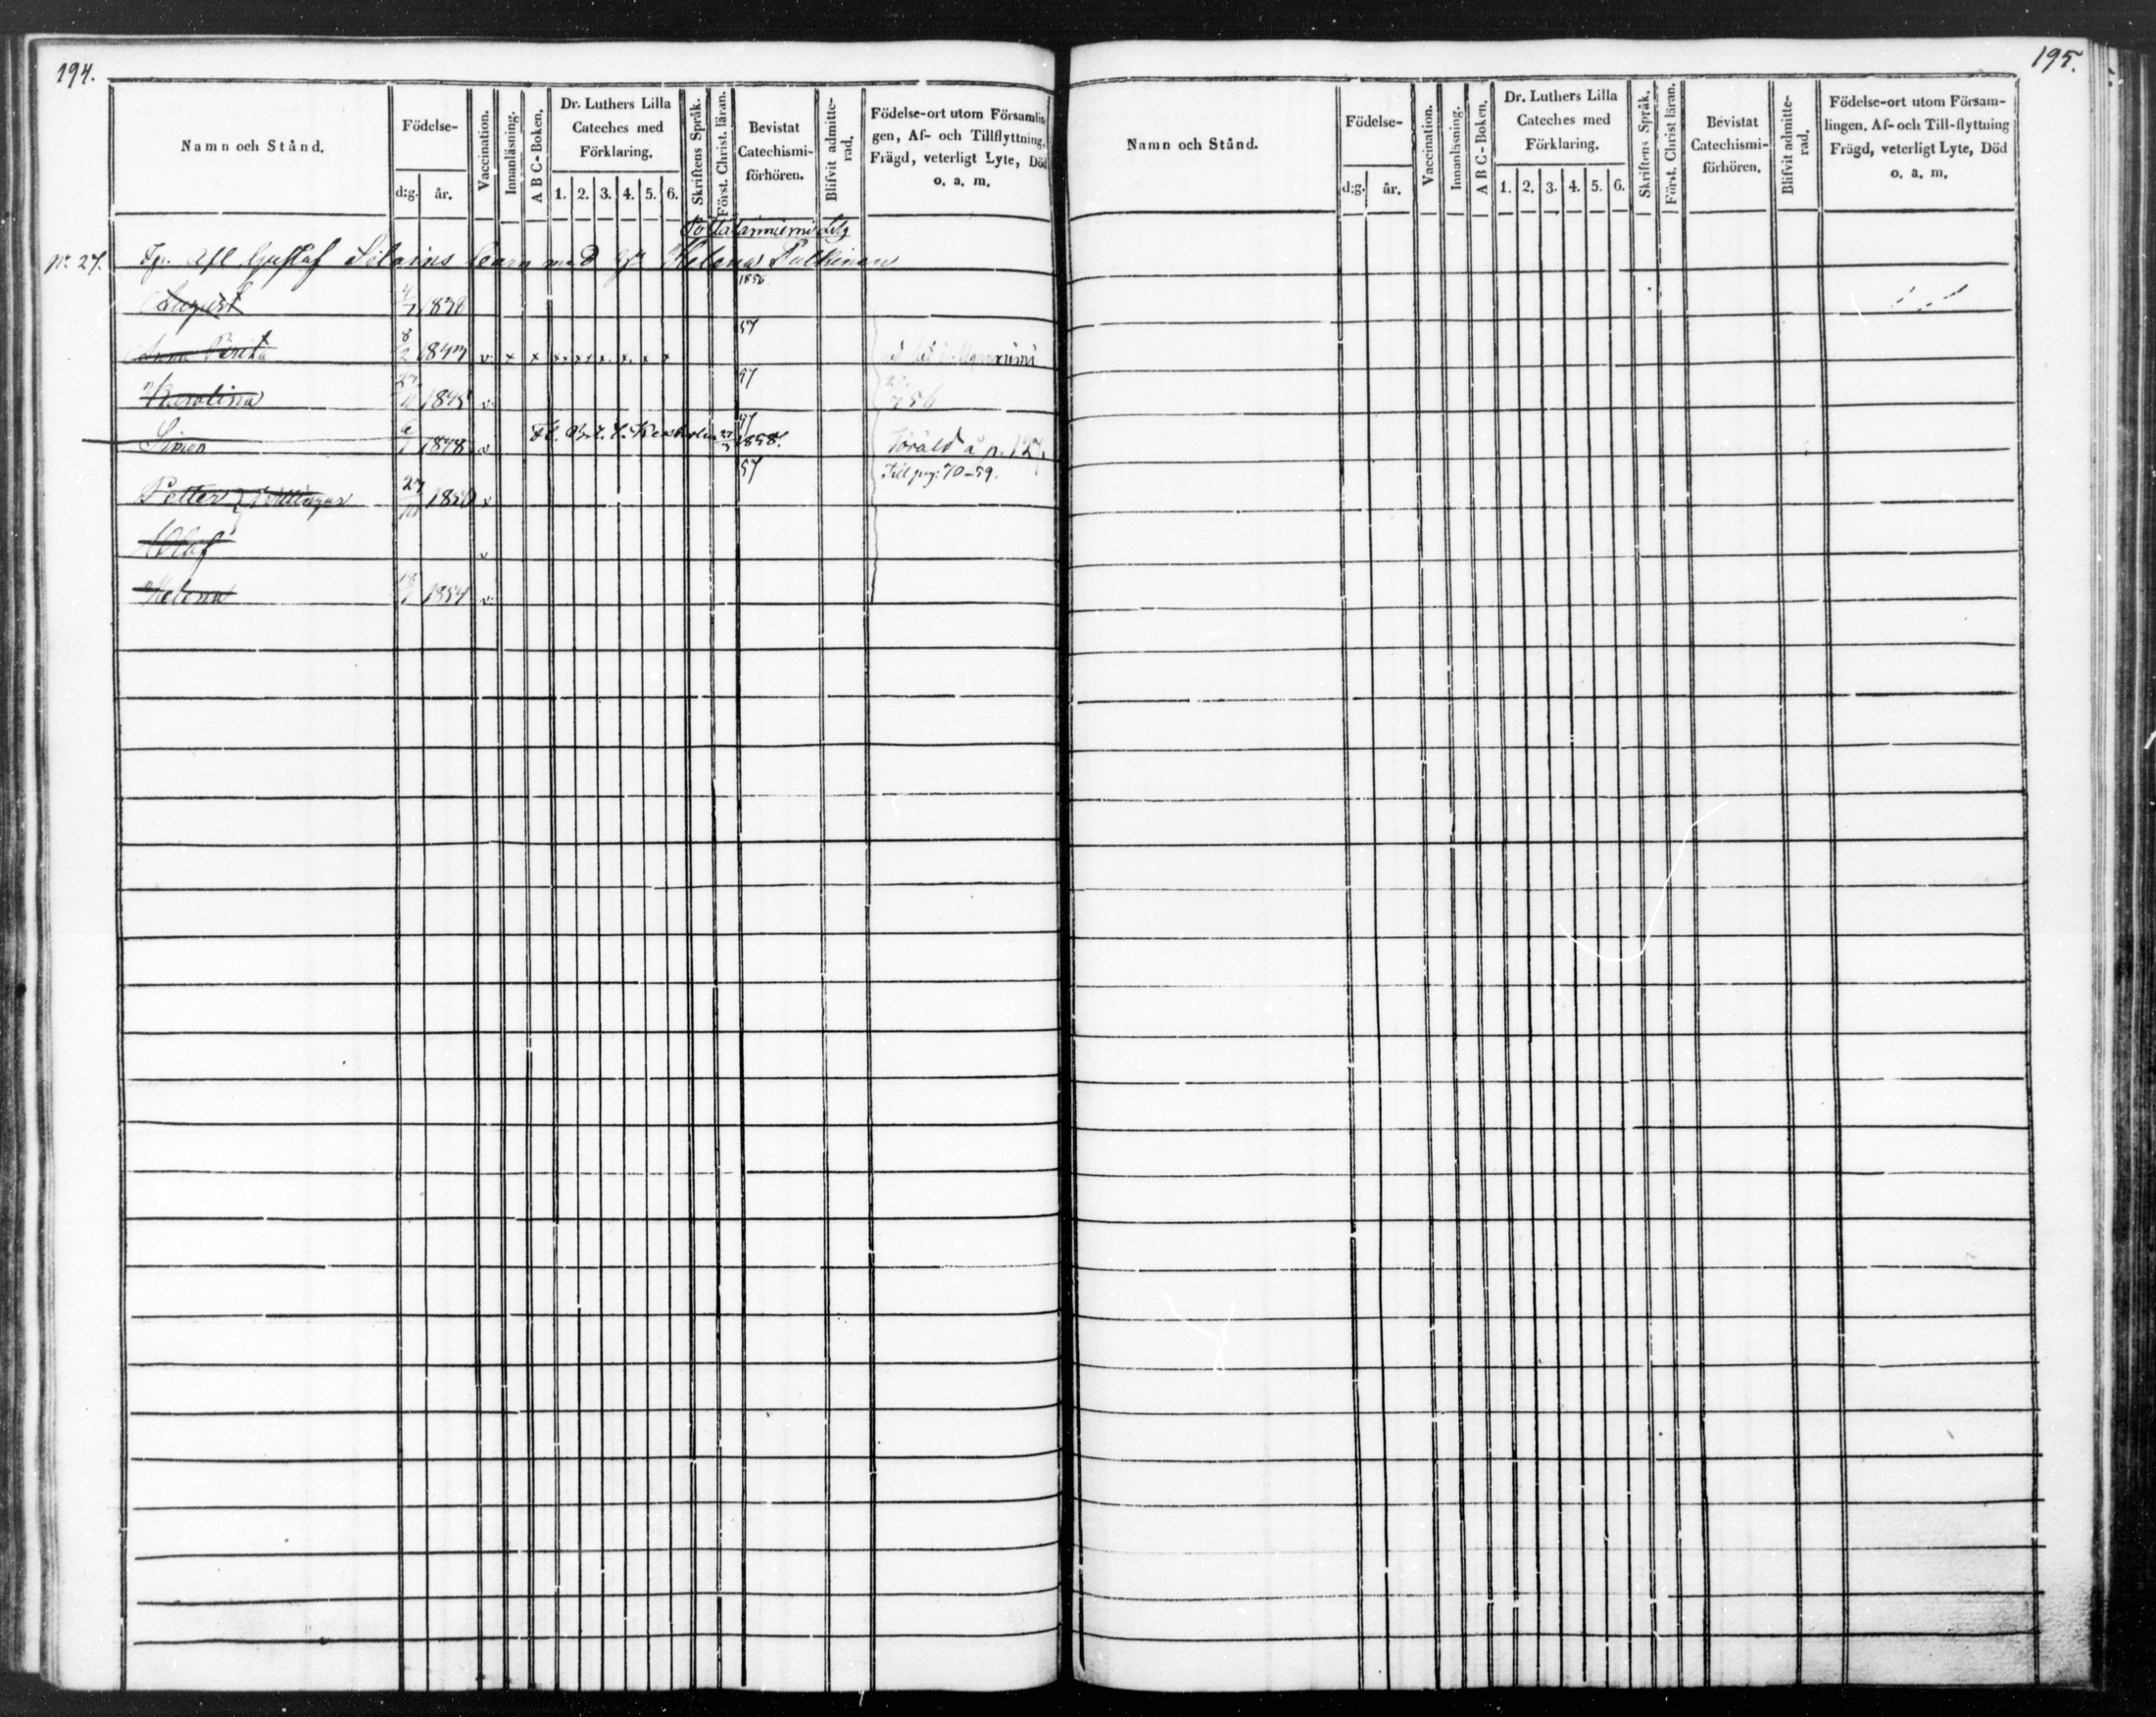 194.
Namn och Stånd.
Födelse-
d:g.
år.
Vaccination.
Innanläsning.
A B C-Boken.
Dr. Luthers Lilla
Cateches med
Förklaring.
1. 2. 3. 4. 5. 6.
Skriftens Språk.
Först. Christ. läran.
Bevistat
Catechismi-
förhören.
Blifvit admitte-
rad.
Födelse-ort utom Församlin
gen, Af- och Tillflyttning,
Frägd, veterligt Lyte, Död
o. a. m.
N:o 27. Afl. Gustaf barn med Helena Pulkinen
1856
August 4/7 1838
57
Anna 8/2 1843 v x x x x x x x x
57
Karolina 1845 v
57
Simon 6/1 1848 v 1858. å p. 127.
57 Till pag: 70-59.
Petter 27/10 1850 v
Olof v
Helena 1854 v
195.
Namn och Stånd.
Födelse-
d:g.
år.
Vaccination.
Innanläsning.
A B C-Boken.
Dr. Luthers Lilla
Cateches med
Förklaring.
1. 2. 3. 4. 5. 6.
Skriftens Språk.
Först. Christ läran.
Bevistat
Catechismi-
förhören.
Blifvit admitte-
rad.
Födelse-ort utom Försam-
lingen, Af- och Till-flyttning
Frägd, veterligt Lyte, Död
o. a. m.